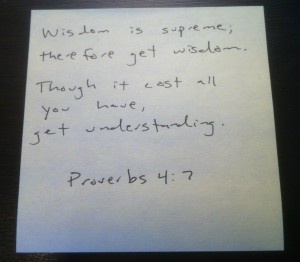 Wisdom is supreme;
therefore get wisdom.
Though it cost all
you have,
get understanding.
Proverbs 4:7